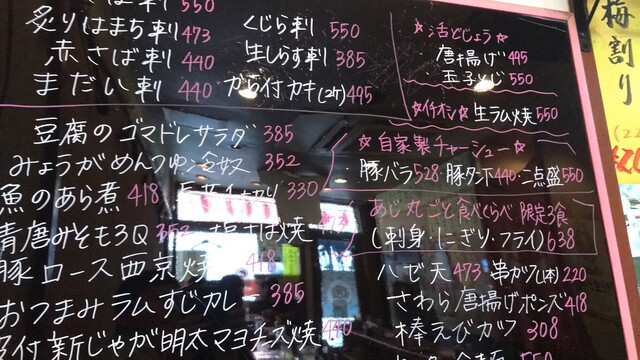 刺 550
炙りはまち刺 473
赤さば刺 440
まだい刺 440
くじら刺 550
生しらす刺 385
から付カキ(2ケ) 495
豆腐のゴマドレサラダ 385
みょうがめんつゆ冷奴 352
魚のあら煮 418
330
青唐みそもろQ 352
塩さば焼 473
豚ロース西京焼 418
おつまみラムすじカレー 385
付新じゃが明太マヨチーズ焼 440
☆活どじょう☆
・唐揚げ 495
・玉子とじ 550
☆イチオシ☆生ラム焼 550
☆自家製チャーシュー☆
豚バラ 528・豚タン下 440・二点盛 550
あじ丸ごと食べくらべ 限定3食
(刺身・にぎり・フライ) 638
ハゼ天 473
串カツ(1本) 220
さわら唐揚げポンズ 418
棒えびカツ 308
梅割り